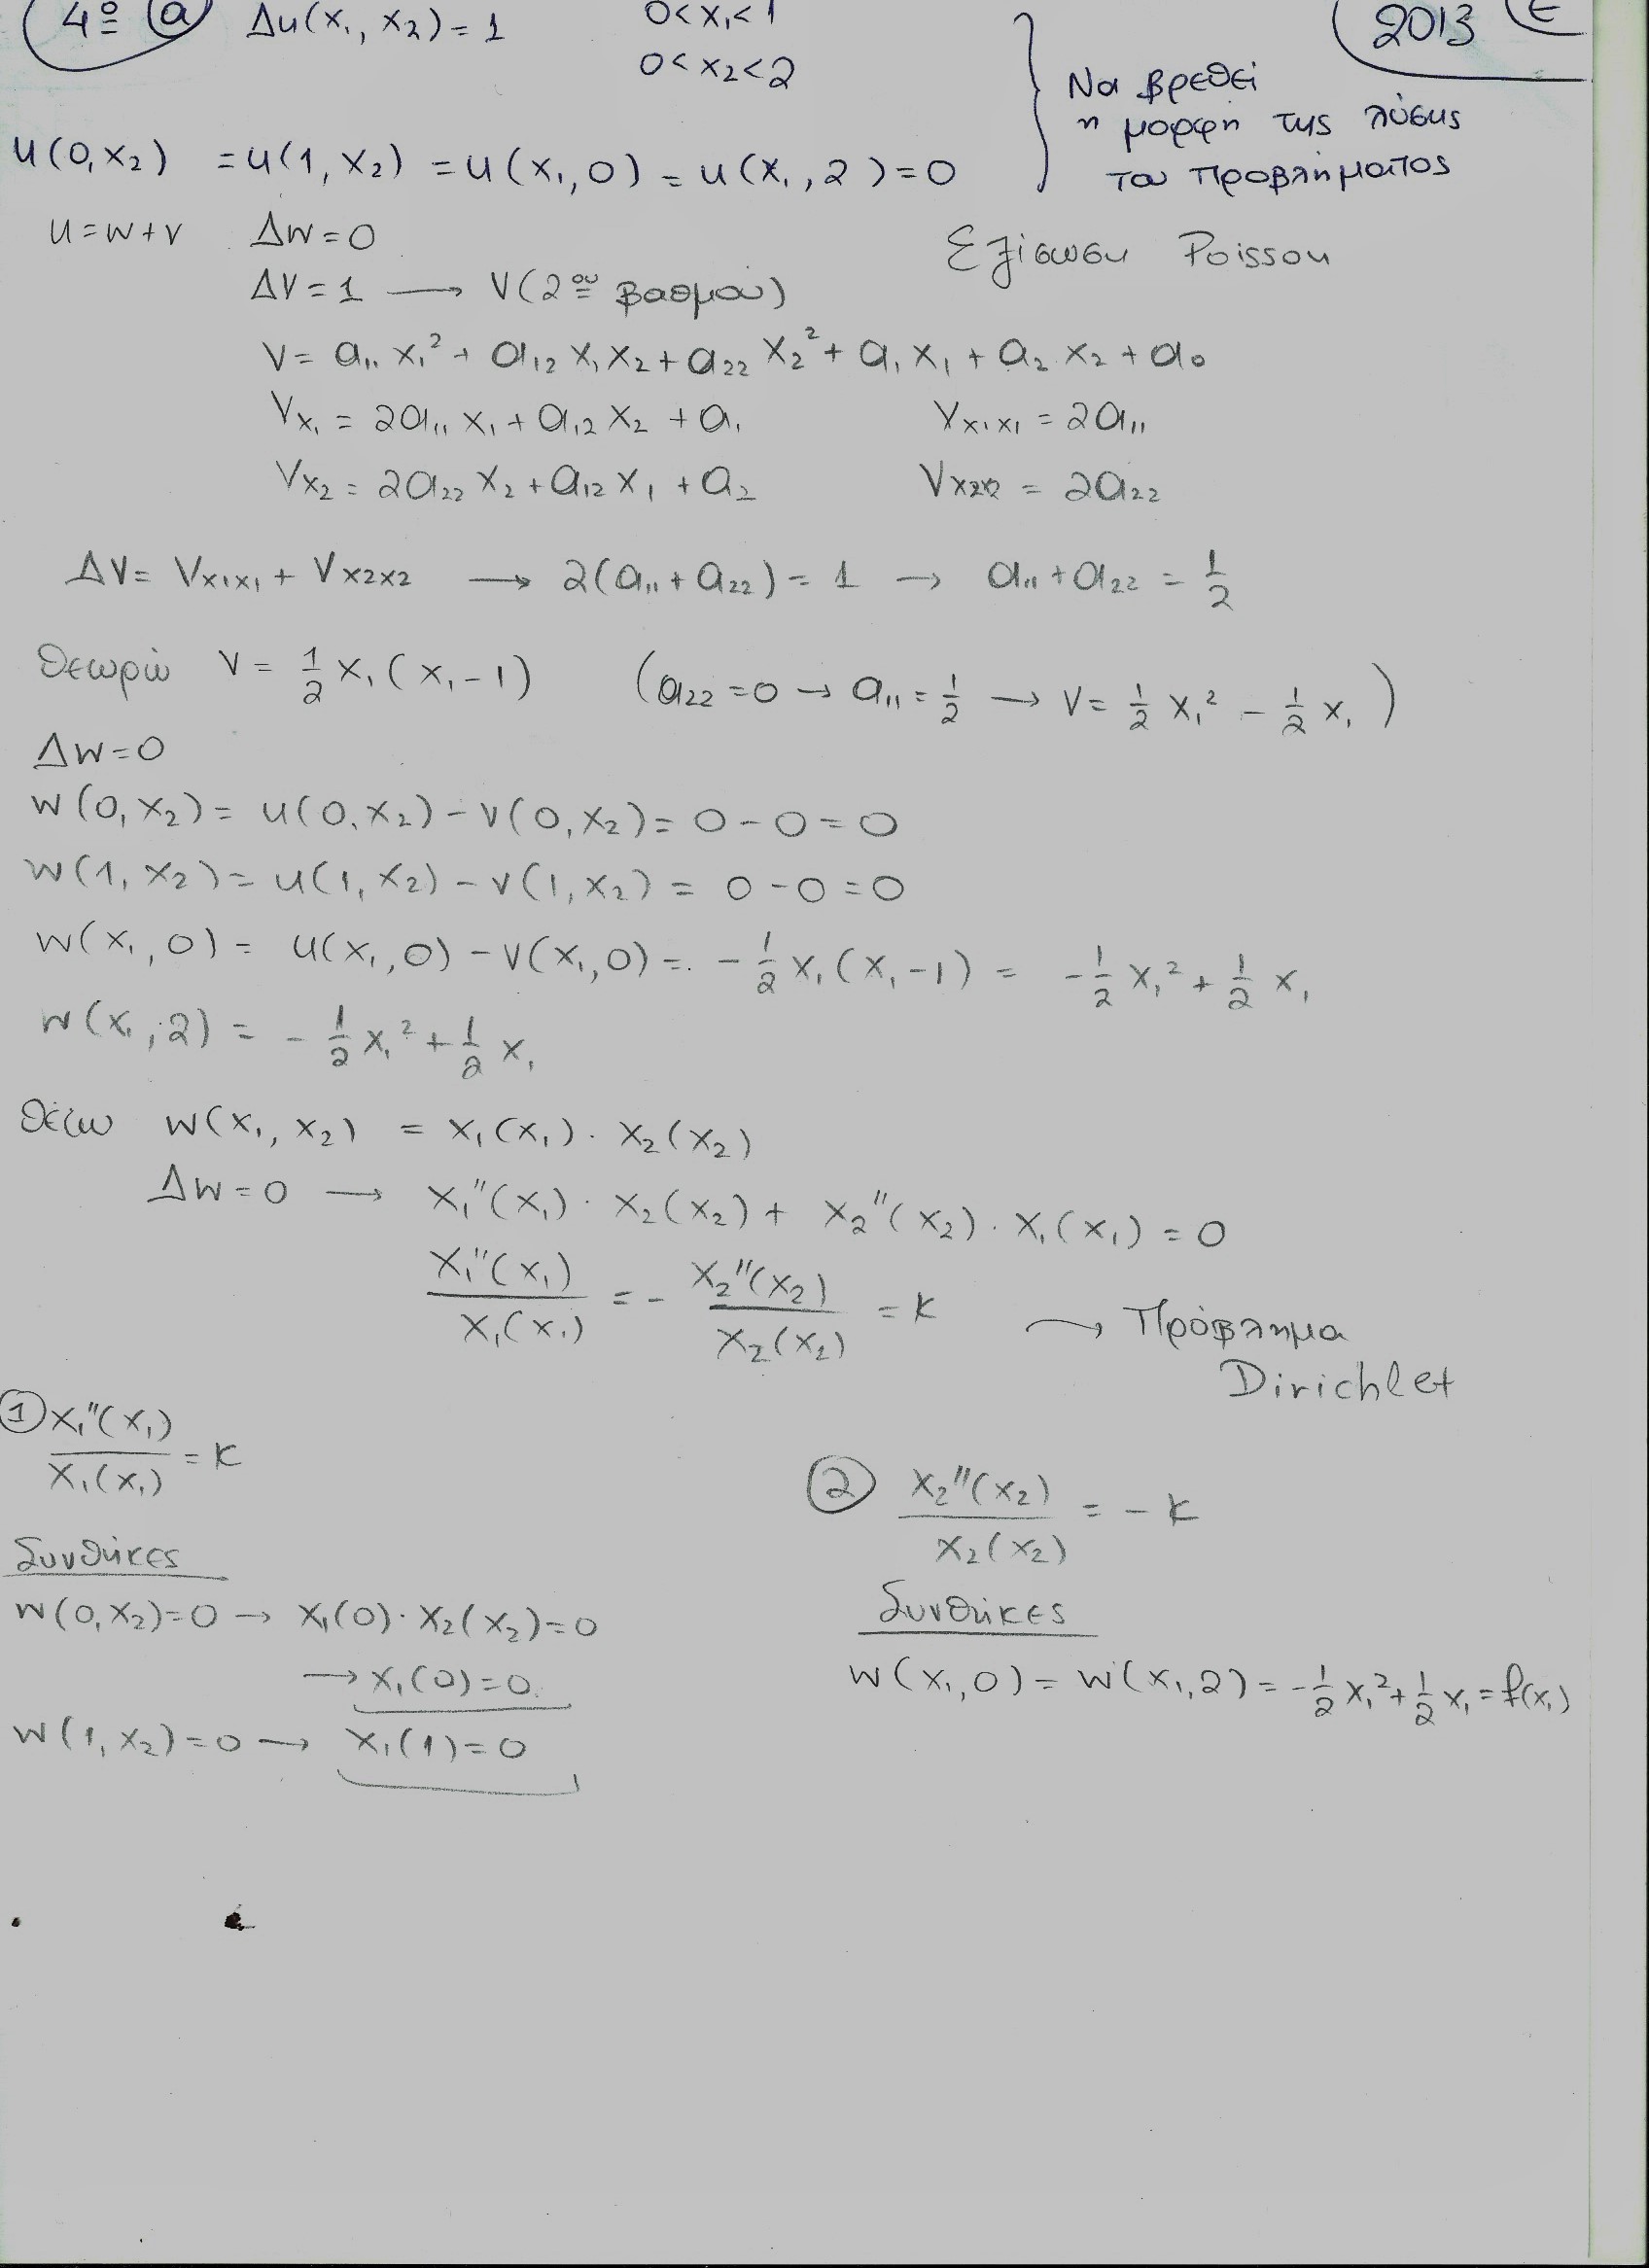 4º α Δu(x₁, x₂) = 1 0<x₁<1 2013 Ε
0<x₂<2
Να βρεθεί
η μορφή της λύσης
u(0,x₂) = u(1,x₂) = u(x₁,0) = u(x₁,2) = 0 του προβλήματος
u=w+v Δw=0 Εξίσωση Poisson
Δv=1 → v(2ου βαθμού)
v= a₁₁x₁² + a₁₂x₁x₂ + a₂₂x₂² + a₁x₁ + a₂x₂ + a₀
Vx₁ = 2a₁₁x₁ + a₁₂x₂ + a₁ Vx₁x₁ = 2a₁₁
Vx₂ = 2a₂₂x₂ + a₁₂x₁ + a₂ Vx₂x₂ = 2a₂₂
Δv= Vx₁x₁ + Vx₂x₂ → 2(a₁₁+a₂₂)=1 → a₁₁+a₂₂ = 1/2
Θεωρώ v= 1/2 x₁(x₁-1) (a₂₂=0 → a₁₁=1/2 → v= 1/2 x₁² - 1/2 x₁)
Δw=0
w(0,x₂)= u(0,x₂)-v(0,x₂)= 0-0=0
w(1,x₂)= u(1,x₂)-v(1,x₂)= 0-0=0
w(x₁,0)= u(x₁,0)-v(x₁,0)= -1/2 x₁(x₁-1) = -1/2 x₁² + 1/2 x₁
w(x₁,2) = -1/2 x₁² + 1/2 x₁
Θέτω w(x₁,x₂) = X₁(x₁)·X₂(x₂)
Δw=0 → X₁''(x₁)·X₂(x₂) + X₂''(x₂)·X₁(x₁) = 0
X₁''(x₁)/X₁(x₁) = - X₂''(x₂)/X₂(x₂) = κ → Πρόβλημα
Dirichlet
① X₁''(x₁)/X₁(x₁) = κ
② X₂''(x₂)/X₂(x₂) = -κ
Συνθήκες
w(0,x₂)=0 → X₁(0)·X₂(x₂)=0
→ X₁(0)=0
w(1,x₂)=0 → X₁(1)=0
Συνθήκες
w(x₁,0) = w(x₁,2) = -1/2 x₁² + 1/2 x₁ = f(x₁)